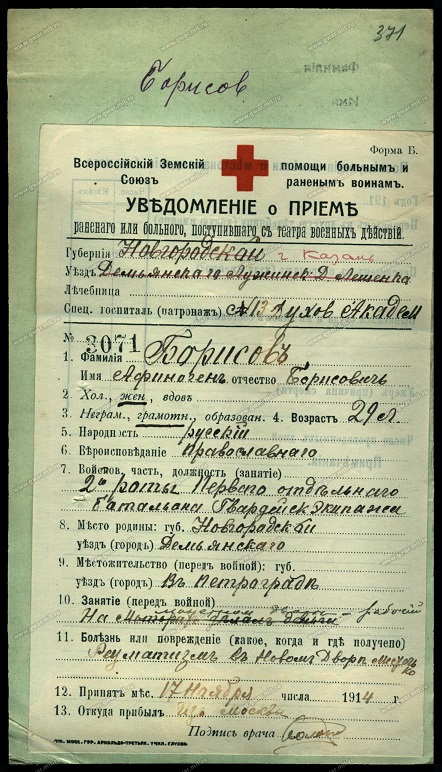 371
Борисов
Форма Б.
Всероссійскій Земскій
Союзъ
помощи больнымъ и
раненымъ воинамъ.
УВѢДОМЛЕНІЕ о ПРІЕМѢ
раненаго или больного, поступившаго съ театра военныхъ дѣйствій.
Губернія Новгородскай г. Казань
Уѣздъ Демьянскаго
Лѣчебница
Спец. госпиталь (патронажъ) №13 Духов. Академ
№ 3071
1. Фамилія Борисовъ
Имя Афиноген отчество Борисовичъ
2. Хол., жен., вдовъ
3. Неграм., грамотн., образован. 4. Возрастъ 29 л.
5. Народность русскій
6. Вѣроисповѣданіе Православнаго
7. Войсков. часть, должность (занятіе)
2ой роты Перваго отдѣльнаго
баталъона Гвардейск Экипажа
8. Мѣсто родины: губ. Новгородскай
уѣздъ (городъ) Демьянскаго
9. Мѣстожительство (передъ войной): губ.
уѣздъ (городъ) Въ Петроградѣ
10. Занятіе (передъ войной) рабочій
На
11. Болѣзнь или поврежденіе (какое, когда и гдѣ получено)
Ревматизмъ въ Новом Дворѣ
12. Принятъ мѣс. 17 Ноября числа 1914 г.
13. Откуда прибылъ изъ Москвы
Подпись врача
ТИП. МОСК. ГОР. АРНОЛЬДО-ТРЕТЬЯК. УЧИЛ. ГЛУХОН.